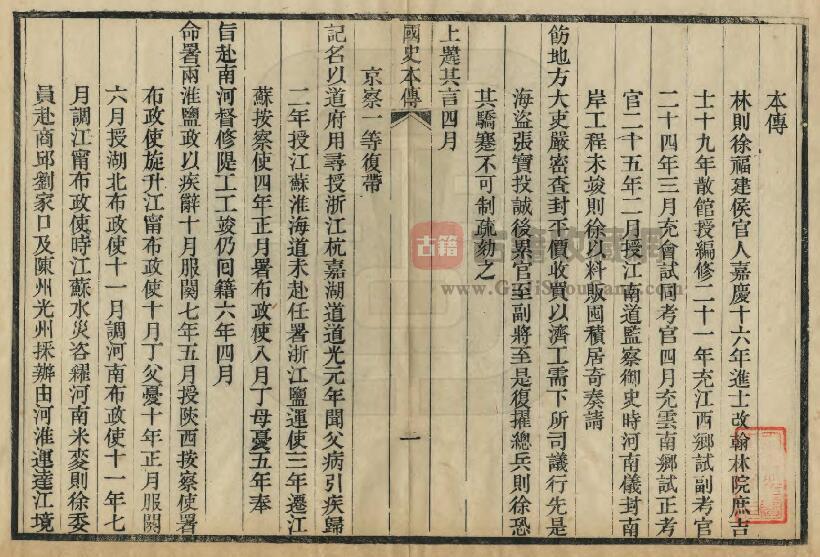 本傳
林則徐福建侯官人嘉慶十六年進士改翰林院庶吉
士十九年散館授編修二十一年充江西鄉試副考官
二十四年三月充會試同考官四月充雲南鄉試正考
官二十五年二月授江南道監察御史時河南儀封南
岸工程未竣則徐以料販囤積居奇奏請
飭地方大吏嚴密查封平價收買以濟工需下所司議行先是
海盜張寶投誠後累官至副將至是復擢總兵則徐恐
其驕蹇不可制疏劾之
上韙其言四月
國史本傳 一
京察一等復帶
記名以道府用尋授浙江杭嘉湖道道光元年聞父病引疾歸
二年授江蘇淮海道未赴任署浙江鹽運使三年遷江
蘇按察使四年正月署布政使八月丁母憂五年奉
旨赴南河督修隄工工竣仍回籍六年四月
命署兩淮鹽政以疾辭十月服闋七年五月授陝西按察使署
布政使旋升江甯布政使十月丁父憂十年正月服闋
六月授湖北布政使十一月調河南布政使十一年七
月調江甯布政使時江蘇水災咨糴河南米麥則徐委
員赴商邱劉家口及陳州光州採辦由河淮運達江境
古籍
古籍收藏網
www.GuJiShouCang.com